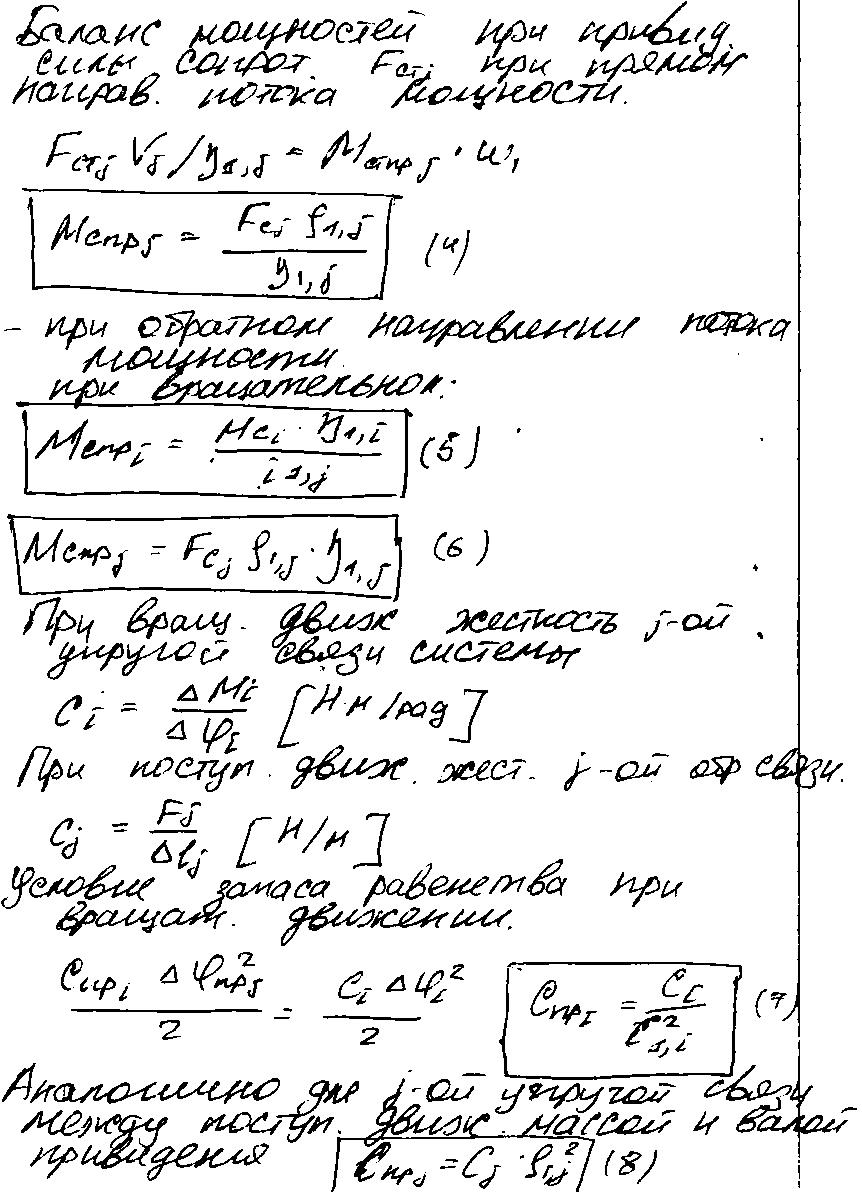 Баланс мощностей при привид.
силы сопрот. Fстj при прямом
направ. потока мощности.
Fстj Vj / η1,j = Mстпрj · ω1
Mспрj = Fcj ρ1,j / η1,j (4)
– при обратном направлении потока
мощности
при вращательном:
Mспрi = Mci · η1,i / i1,j (5)
Mспрj = Fcj ρ1,j · η1,j (6)
При вращ. движ жесткость j-ой
упругой связи системы
Ci = ΔMi / Δφi [Н·м/рад]
При поступ. движ. жест. j-ой упр связи.
Cj = Fj / Δlj [Н/м]
Условие запаса равенства при
вращат. движении.
Cпрi Δφпрj² / 2 = Ci Δφi² / 2 Cпрi = Ci / i²1,i (7)
Аналогично для j-ой упругой связи
между поступ. движ. массой и валом
привидения Cпрj = Cj · ρ1,j² (8)